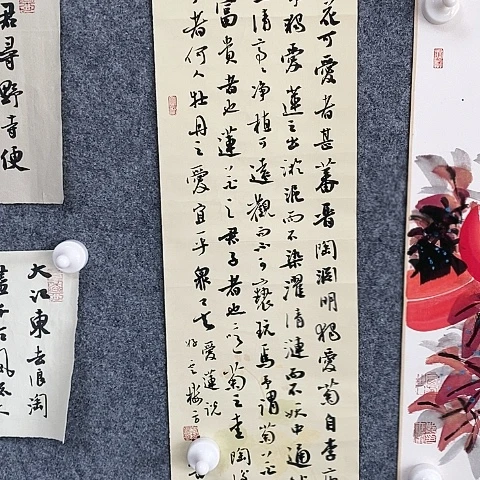 花可愛者甚蕃晋陶渊明独愛菊自李唐
独愛蓮之出淤泥而不染濯清漣而不妖中通
清亭々净植可遠觀而不可褻玩焉予謂菊花
富貴者也蓮花之君子者也噫菊之愛陶後
者何人牡丹之愛宜乎衆矣
愛蓮説
君尋野寺便
大江東去浪淘
盡千古風流人